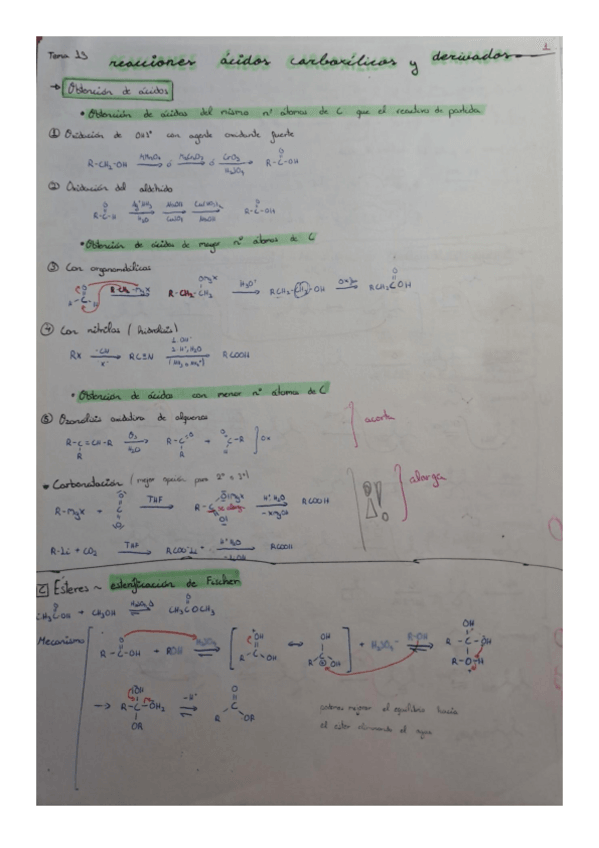 Tema 13
1
reacciones ácidos carboxílicos y derivados
→ Obtención de ácidos
• Obtención de ácidos del mismo nº átomos de C que el reactivo de partida
① Oxidación de OH 1º con agente oxidante fuerte
R-CH₂-OH KMnO₄ ó Na₂CrO₃ ó CrO₃ H₂SO₄ R-C-OH
② Oxidación del aldehído
R-C-H Ag⁺NH₃ H₂O NaOH CuSO₄ NaOH R-C-OH
• Obtención de ácidos de mayor nº átomos de C
③ Con organometálicos
R-CH₂-MgX R-CH₂-CH₂ OMgX H₃O⁺ RCH₂-CH₂-OH Ox RCH₂COH
④ Con nitrilos (hidrólisis)
RX ⁻CN X⁻ RC≡N 1. OH⁻ 2. H⁺, H₂O RCOOH
• Obtención de ácidos con menor nº átomos de C
⑤ Ozonolisis oxidativa de alquenos
acorta
R-C=CH-R O₃ H₂O R-C + C-R Ox
R R
• Carbonatación (mejor opción para 2º o 3º)
alarga
R-MgX + C THF R-C OMgX H⁺, H₂O -XMgOH RCOOH
R-Li + CO₂ THF RCOO⁻Li⁺ H⁺ H₂O -LiOH RCOOH
2 Ésteres ~ esterificación de Fischer
CH₃COH + CH₃OH H₂SO₄ CH₃COCH₃
Mecanismo
R-C-OH + ROH H₂SO₄ R-C-OH ↔ R-C-OH + HSO₄⁻ R-OH R-C-OH
→ R-C-OH₂ -H⁺ R-C-OR
OR
podemos mejorar el equilibrio hacia
el éster eliminando el agua